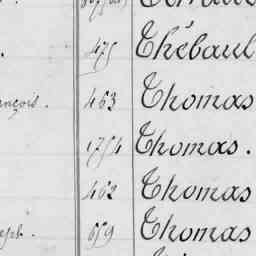 . 475 Thébaul
ançois. 463 Thomas
1754 Thomas.
462 Thomas
seph. 659 Thomas